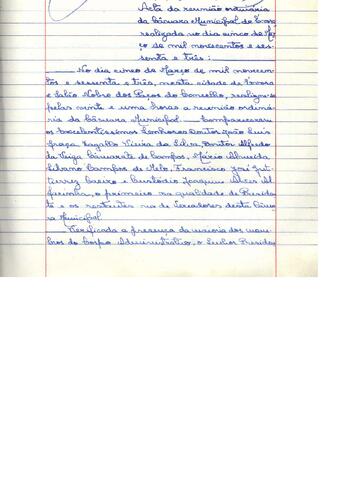 Acta da reunião ordinária
da Câmara Municipal de Evora
realizada no dia cinco de Mar-
ço de mil novecentos e ses-
senta e três:
No dia cinco de Março de mil novecen-
tos e sessenta e três, nesta cidade de Evora
e Salão Nobre dos Paços do Concelho, realizou-se
pelas vinte e uma horas a reunião ordiná-
ria da Câmara Municipal. Compareceram
os Excelentíssimos Senhores Doutor João Luis
Vieira da Silva, Doutor Alfredo
da Veiga Camarate de Campos, Márcio Almeida
Silvano Campos de Melo, Francisco José Gut-
tierrez e Custódio Joaquim
o primeiro na qualidade de Presiden-
te e os restantes na de Vereadores desta Câma-
ra Municipal.
Verificada a presença da maioria dos mem-
bros do Corpo Administrativo, o Senhor Presiden-